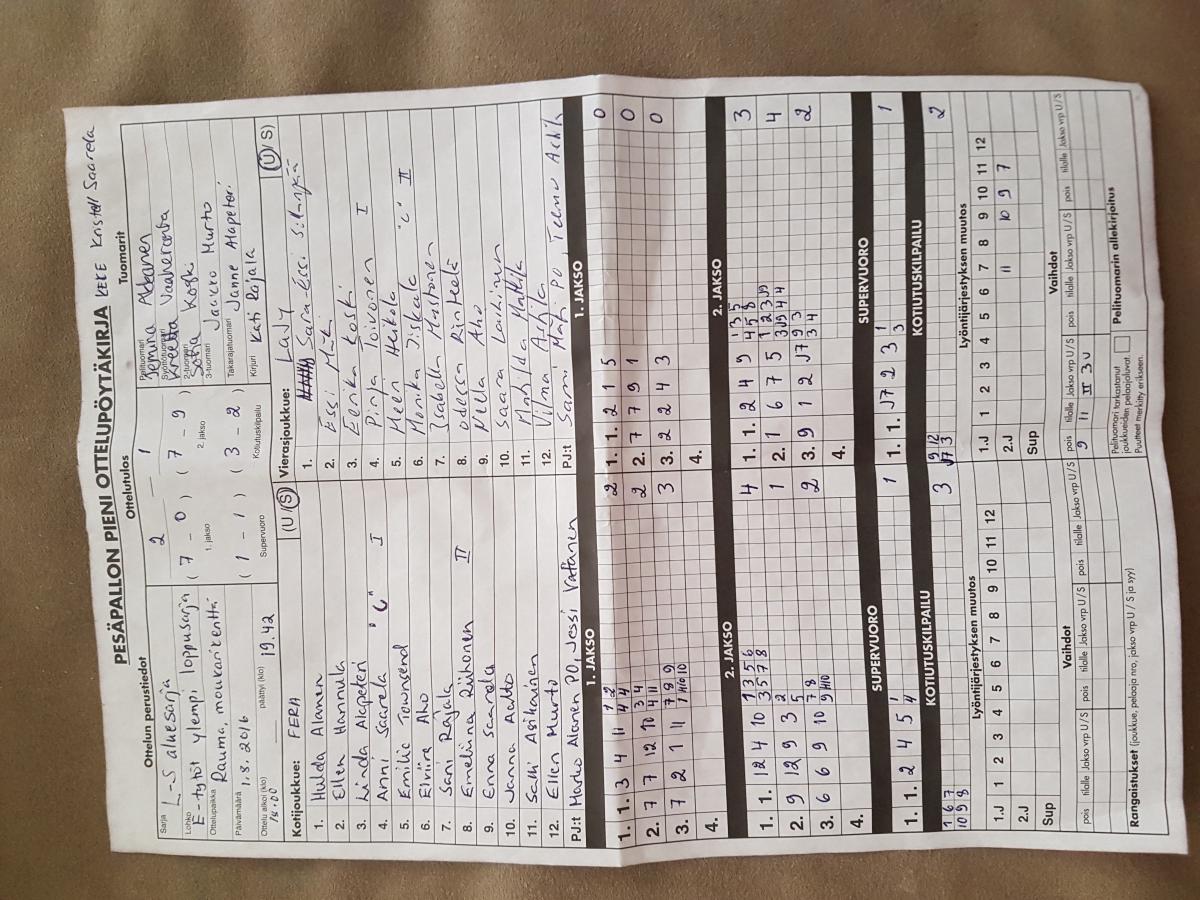 PESÄPALLON PIENI OTTELUPÖYTÄKIRJA KEKE Kristell Saarela
Ottelun perustiedot
Ottelutulos
Tuomarit
Sarja L-S aluesarja
Lohko E-tytöt ylempi loppusarja
Ottelupaikka Rauma, moukarikenttä
Päivämäärä 1.8.2016
Ottelu alkoi (klo) 18.00
päättyi (klo) 19.42
2 1
( 7 - 0 ) ( 7 - 9 )
1. jakso 2. jakso
( 1 - 1 ) ( 3 - 2 )
Supervuoro Kotiutuskilpailu
Pelituomari Jemina
Syöttötuomari Kreetta Vaaheranta
2-tuomari Sofia Koski
3-tuomari Jaakko Murto
Takarajatuomari Janne Alapeteri
Kirjuri Kati Rajala
Kotijoukkue: FERA (U/S)
1. Hulda Alanen
2. Ellen Hannula
3. Linda Alapeteri
4. Anni Saarela "C" I
5. Emilie Townsend
6. Eiviira Aho
7. Sani Rajala
8. Emeliina Riihonen II
9. Enna Saarela
10. Janna Aalto
11. Salli Asikainen
12. Ellen Murto
PJ:t Marko Alanen PO, Jessi Vatanen
Vierasjoukkue: LaJy (U/S)
1. Saara-Essi Sillanpää
2. Essi Mäki
3. Eerika Koski
4. Pinja Toivonen I
5. Meeri Heikola
6. Monika Jiskala "C" II
7. Isabella Mustonen
8. Odessa Rinkelä
9. Neella Aho
10. Saara Laukinen
11. Mathilda Mattila
12. Vilma Ashla
PJ:t Sami Mäki PO, Teemu
1. JAKSO
1. 1. 3 4 11 1 2 4 4 2
2. 7 7 12 10 3 4 4 11 2
3. 7 2 1 11 7 8 9 3
4.
1. JAKSO
1. 1. 2 1 5 0
2. 7 7 9 1 0
3. 2 2 4 3 0
4.
2. JAKSO
1. 1. 12 4 10 1 3 5 6 3 5 7 8 4
2. 9 12 9 3 2 5 1
3. 6 6 9 10 7 8 9 2
4.
2. JAKSO
1. 1. 2 4 9 1 3 5 4 5 8 3
2. 1 6 7 5 4
3. 9 1 2 J7 9 3 3 4 2
4.
SUPERVUORO
1. 1. 2 4 5 1 4 1
SUPERVUORO
1. 1. J7 2 3 1 3 1
KOTIUTUSKILPAILU
1 6 7
10 9 8 3
KOTIUTUSKILPAILU
9 12
J7 3 2
Lyöntijärjestyksen muutos
1.J 1 2 3 4 5 6 7 8 9 10 11 12
2.J
Sup
Lyöntijärjestyksen muutos
1.J 1 2 3 4 5 6 7 8 9 10 11 12
2.J 11 10 9 7
Sup
Vaihdot
pois tilalle Jakso vrp U/S pois tilalle Jakso vrp U/S pois tilalle Jakso vrp U/S
Vaihdot
pois tilalle Jakso vrp U/S pois tilalle Jakso vrp U/S pois tilalle Jakso vrp U/S
9 11 II 3U
Rangaistukset (joukkue, pelaaja nro, jakso vrp U / S ja syy)
Pelituomari tarkastanut
joukkueiden pelaajaluvat.
Puutteet merkitty erikseen.
Pelituomarin allekirjoitus